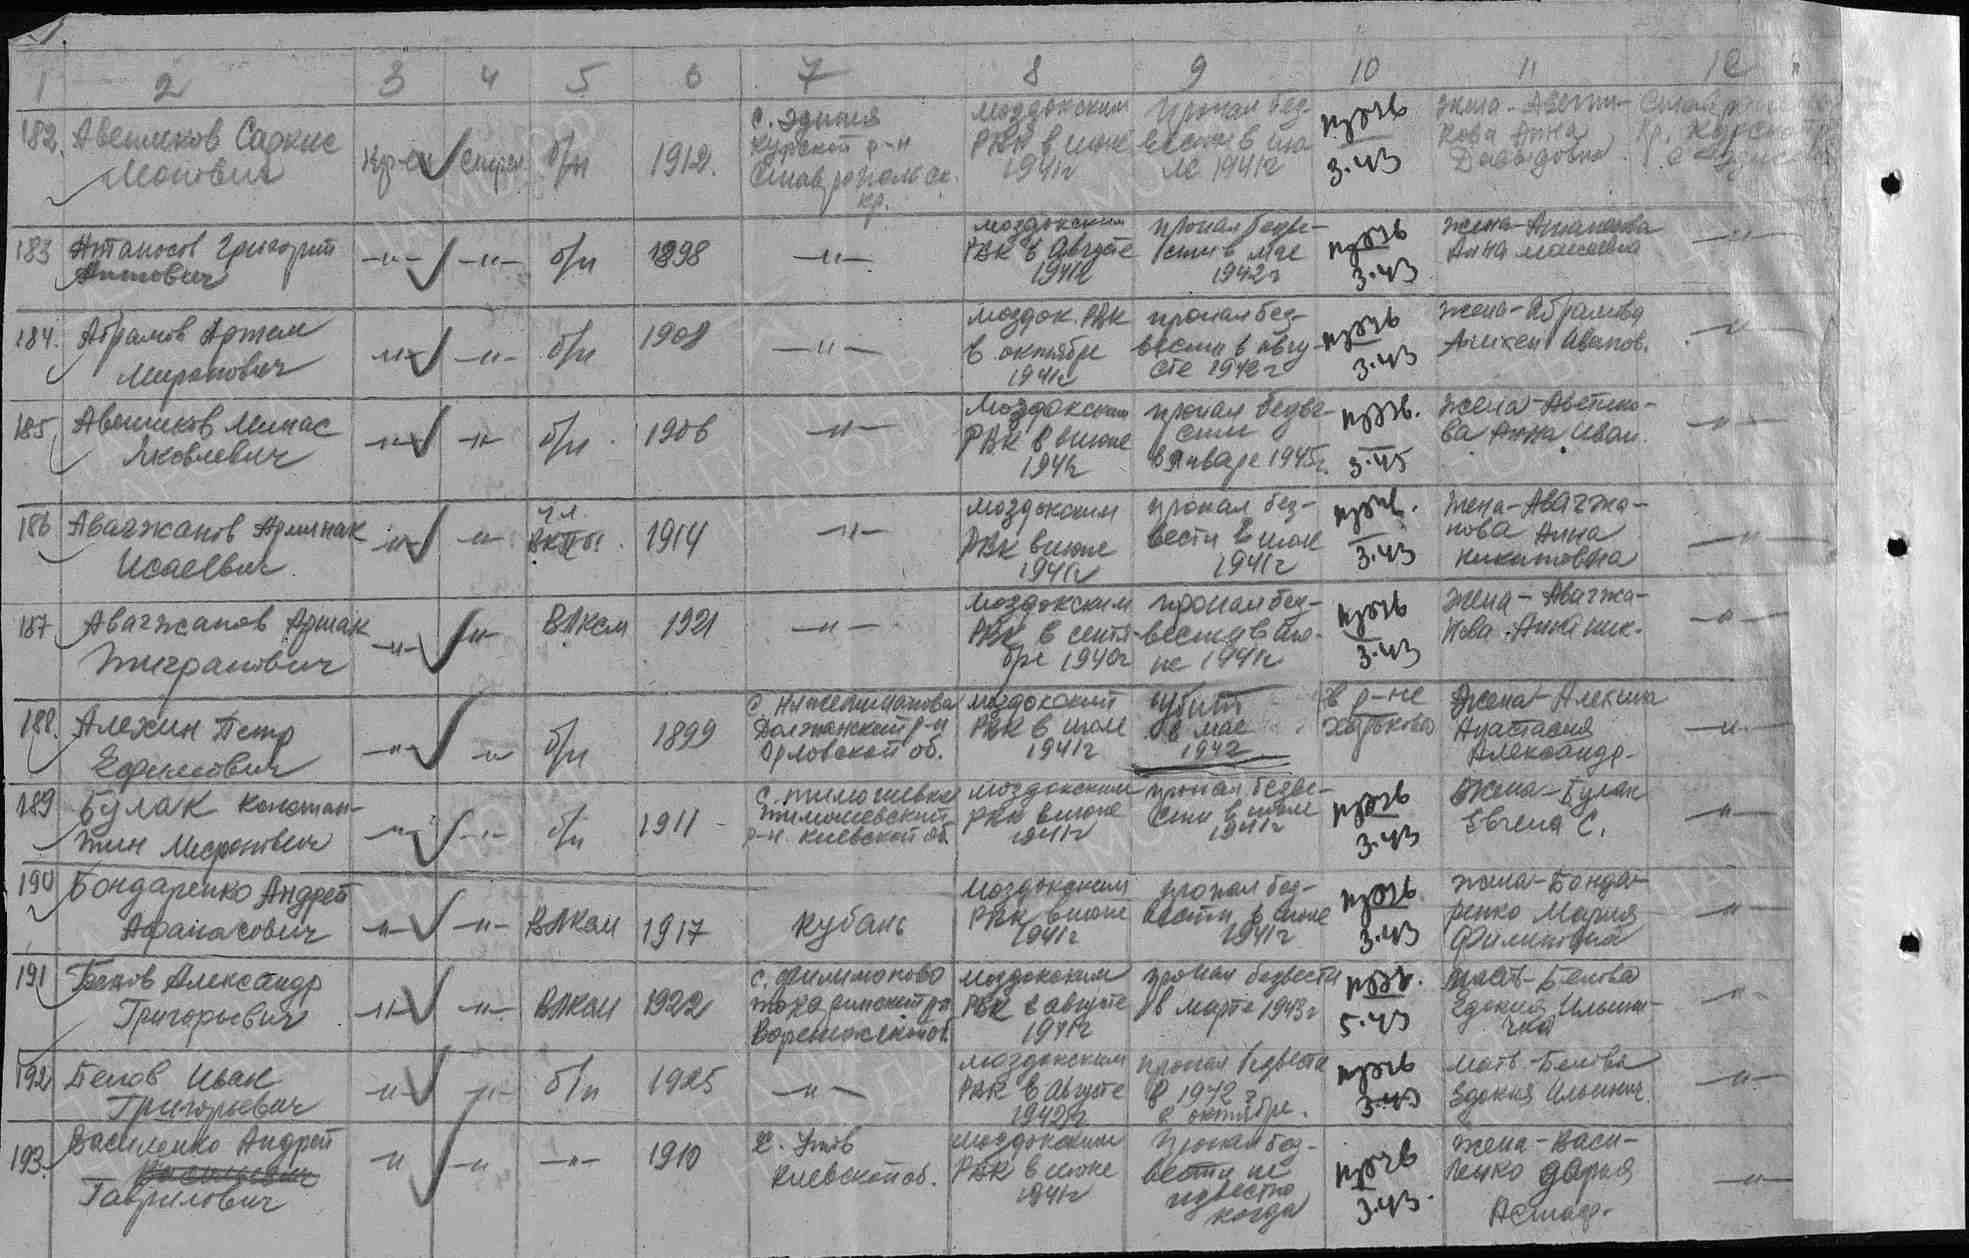 1 2 3 4 5 6 7 8 9 10 11 12
182. Аветиков Саркис
Мопович
кр-ец
б/п
1912.
с. Эдиссия
Курской р-н
Ставропольск.
кр.
Моздокским
РВК в июне
1941г
пропал без-
вести в ию
ле 1941г
3.43
жена - Авети-
кова Анна
Давыдовна
183 Атаносов Григорий
Антович
-"- -"- б/п 1898 -"-
Моздокским
РВК в августе
1941г
пропал безве-
сти в мае
1942г
3.43
жена - Атанасова
Анна Моисеевна
-"-
184. Абрамов Артем
Миронович
-"- -"- б/п 1908 -"-
Моздок. РВК
в октябре
1941г
пропал без-
вести в авгу-
сте 1942г
3.43
жена - Абрамова
Иванов.
-"-
185 Аветиков Минас
Яковлевич
-"- -"- б/п 1906 -"-
Моздокским
РВК в июне
1941г
пропал безве-
сти
в январе 1945г.
3.45
жена - Аветико-
ва Анна Иван.
-"-
186 Авагжанов Арминак
Исаевич
-"- -"-
чл.
ВКПб
1914 -"-
Моздокским
РВК в июне
1941г
пропал без-
вести в июне
1941г
3.43
жена - Авагжа-
нова Анна
Никитовна
-"-
187 Авагжанов Аршак
Тигранович
-"- -"- ВЛКСМ 1921 -"-
Моздокским
РВК в сентя-
бре 1940г
пропал без-
вести в ию-
не 1941г
3.43
жена - Авагжа-
нова Ник.
-"-
188. Алехин Петр
Ефимович
-"- -" б/п 1899
Должанский р-н
Орловской об.
Моздокский
РВК в июле
1941г
убит
в мае
1942
в р-не
Харьково
жена - Алехина
Анастасия
Александр.
-"-
189 Булак Констан-
тин Миронович
-"- -"- б/п 1911
с. Тимошевка
Тимошевский
р-н. Киевской об.
Моздокским
РВК в июне
1941г
пропал безве-
сти в июле
1941г
3.43
жена - Булак
Евгена С.
-"-
190 Бондаренко Андрей
Афанасович
-"- -"- ВЛКСМ 1917 Кубань
Моздокским
РВК в июне
1941г
пропал без-
вести в июне
1941г
3.43
жена - Бонда-
ренко Мария
Филиповна
-"-
191 Белов Александр
Григорьевич
-"- -"- ВЛКСМ 1922
с. Филимоново
Воронежской об.
Моздокским
РВК в августе
1941г
пропал безвести
в марте 1943г
5.43
мать - Белова
Едокия Ильини-
чна
-"-
192 Белов Иван
Григорьевич
-"- -"- б/п 1925 -"-
Моздокским
РВК в августе
1942г
пропал безвести
в 1942г
в октябре.
3.43
мать - Белова
Едокия Ильинич.
-"-
193. Василенко Андрей
Гаврилович
-"- -"- -"- 1910
Киевской об.
Моздокским
РВК в июне
1941г
пропал без-
вести не
известно
когда
3.43.
жена - Васи-
ленко Дария
Астаф.
-"-